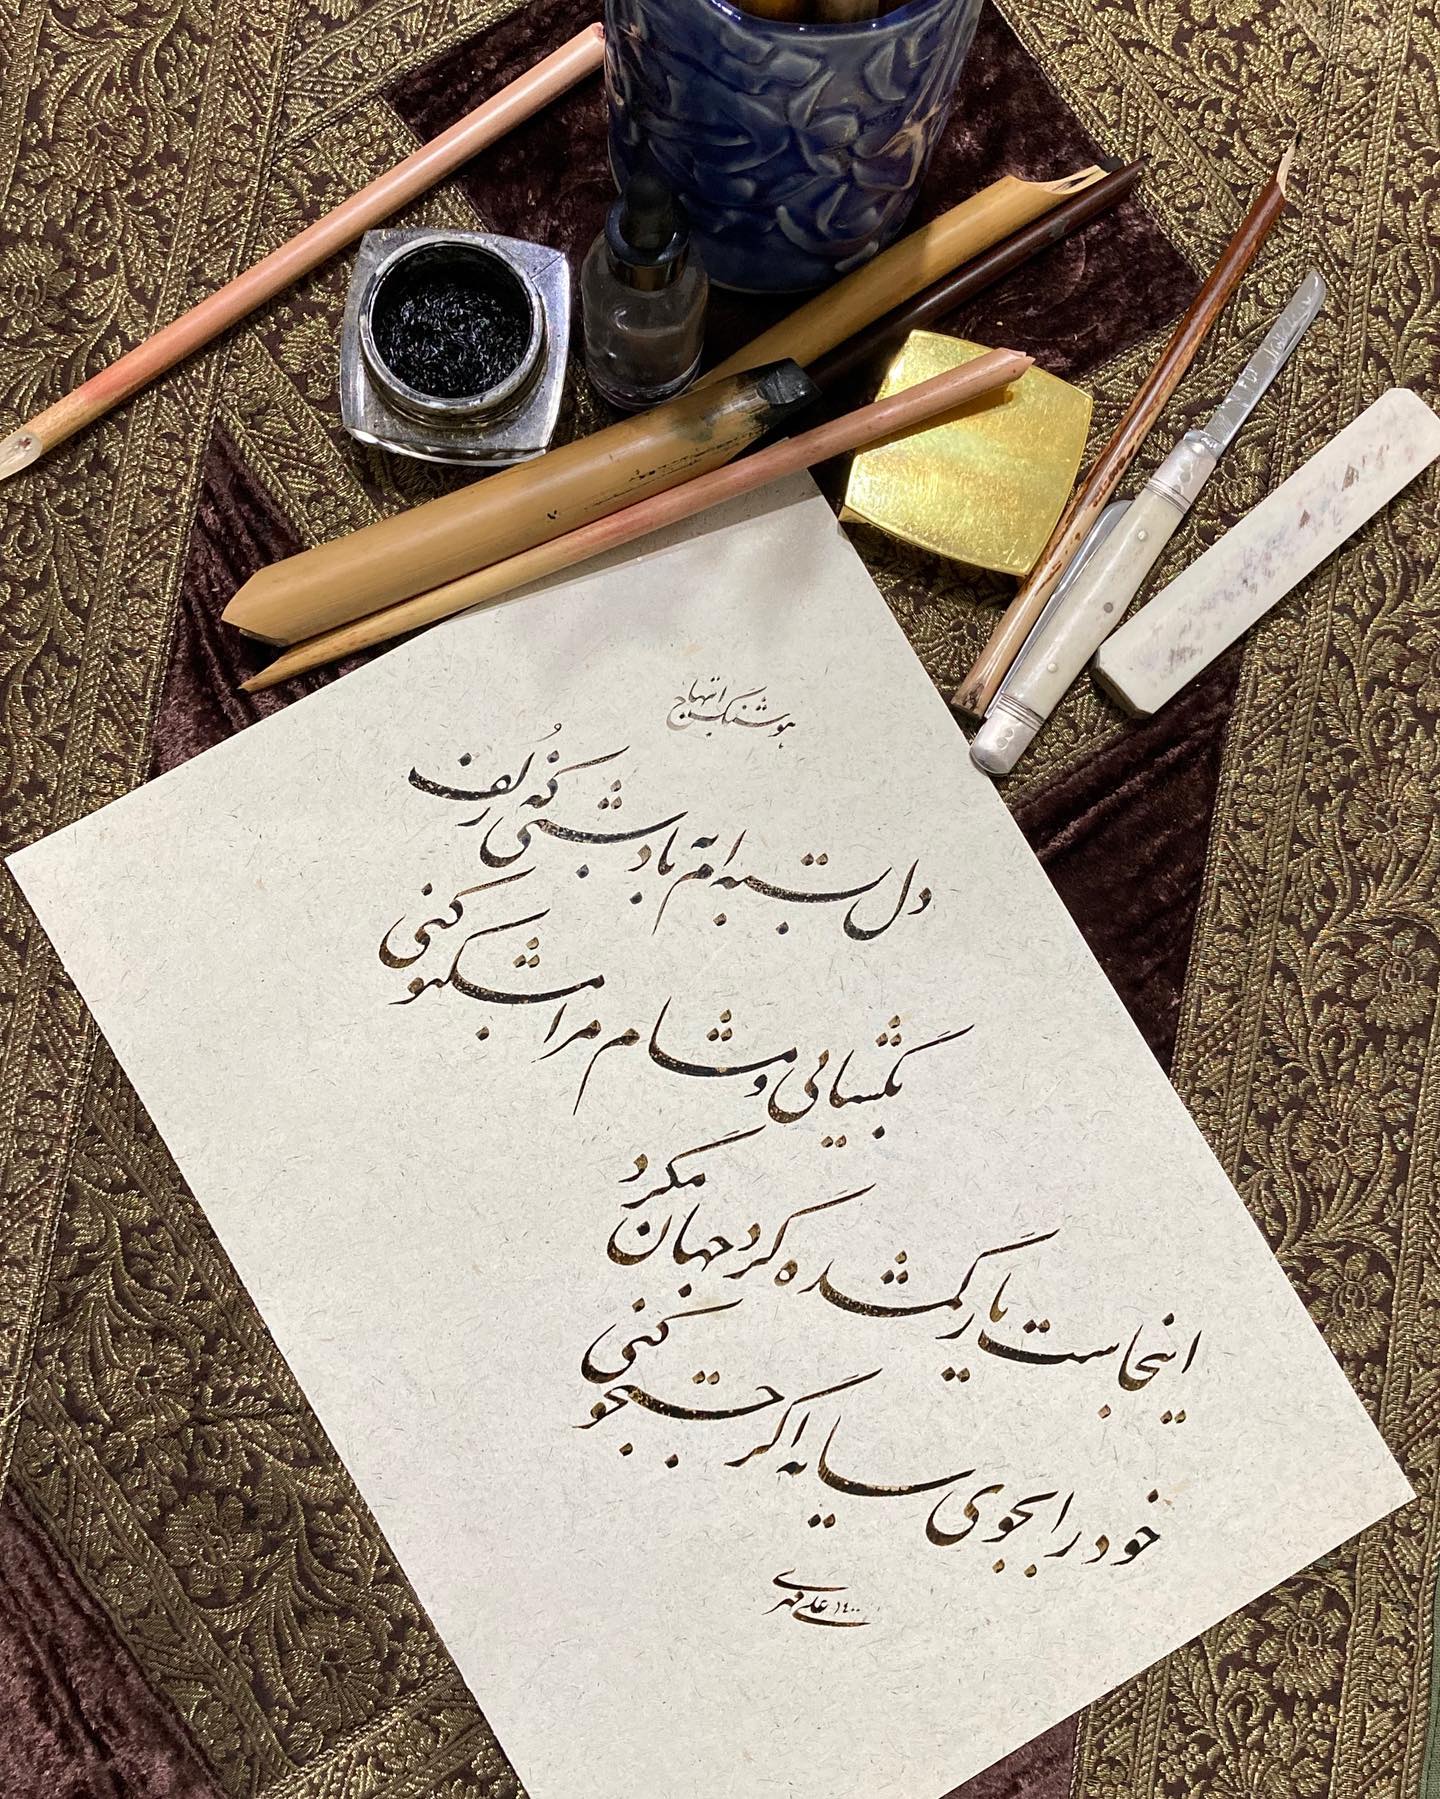 هوشنگ ابتهاج
دل بسته‌ام به باد به بوی شبی که زلف
بگشایی و مشام مرا مشکبو کنی
اینجاست یار گمشده گرد جهان مگرد
خود را بجوی سایه اگر جستجو کنی
علی قهری ۱۴۰۰